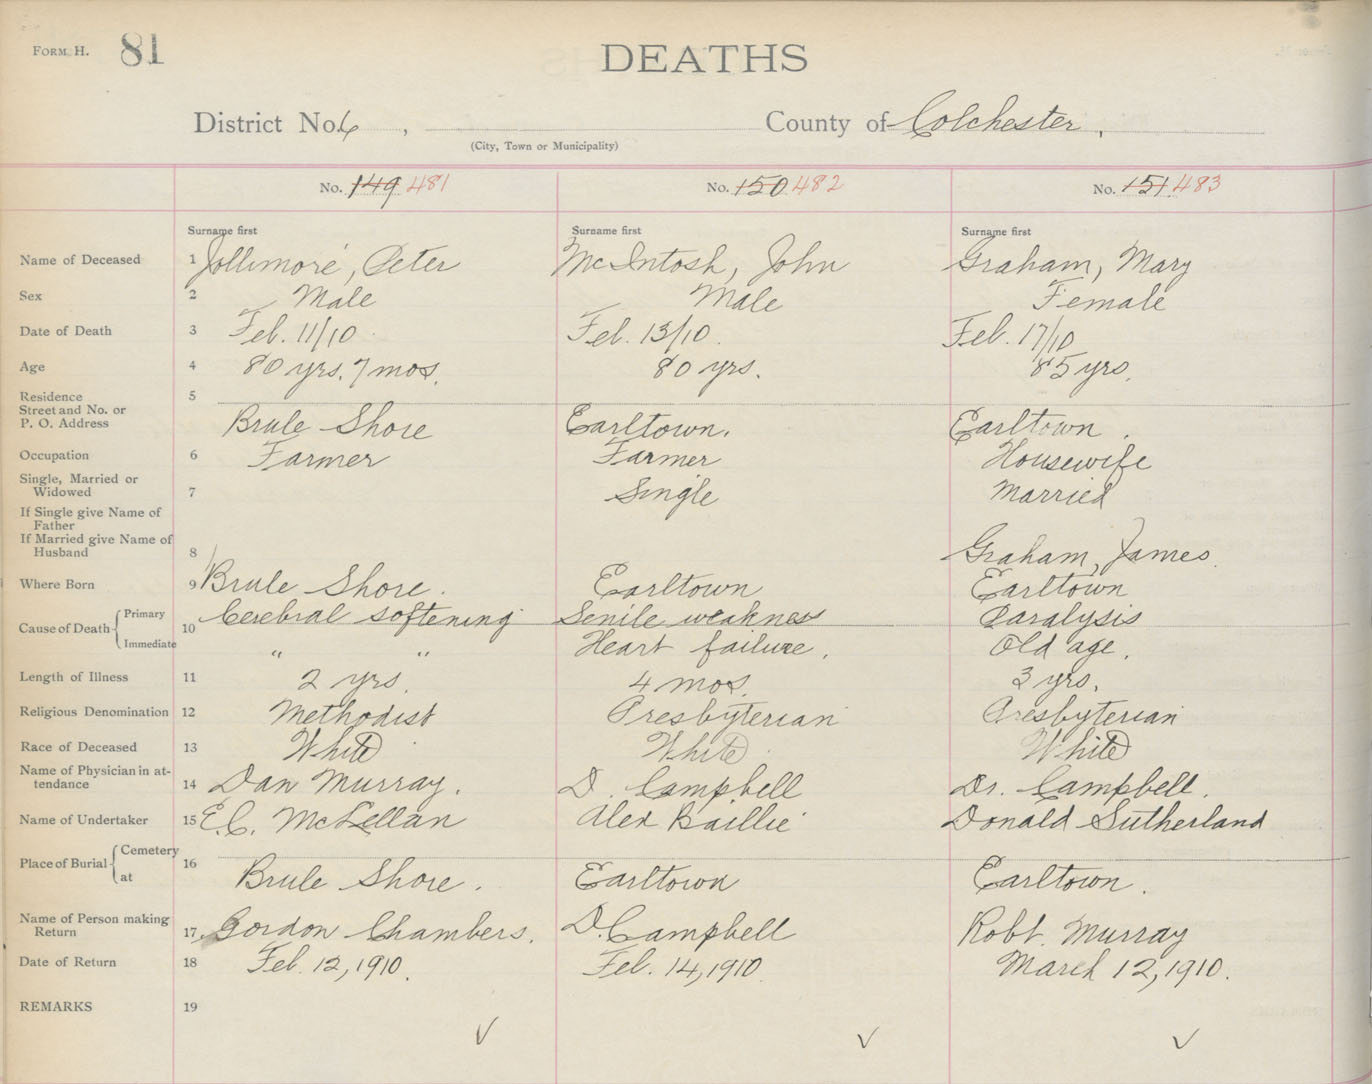 FORM H. 81
DEATHS
District No. 6, County of Colchester.
(City, Town or Municipality)
No. 149 481 No. 150 482 No. 151 483
Surname first Surname first Surname first
Name of Deceased 1 Jollimore, Peter McIntosh, John Graham, Mary
Sex 2 Male Male Female
Date of Death 3 Feb. 11/10 Feb. 13/10. Feb. 17/10
Age 4 80 yrs. 7 mos. 80 yrs. 85 yrs.
Residence 5
Street and No. or
P. O. Address Brule Shore Earltown. Earltown.
Occupation 6 Farmer Farmer Housewife
Single, Married or
Widowed 7 Single Married
If Single give Name of
Father
If Married give Name of
Husband 8 Graham, James.
Where Born 9 Brule Shore. Earltown Earltown
Cause of Death Primary 10 Cerebral softening Senile weakness Paralysis
Immediate " " Heart failure. Old age.
Length of Illness 11 2 yrs. 4 mos. 3 yrs.
Religious Denomination 12 Methodist Presbyterian Presbyterian
Race of Deceased 13 White White White
Name of Physician in at-
tendance 14 Dan Murray. D. Campbell Dr. Campbell.
Name of Undertaker 15 E.C. McLellan Alex Baillie Donald Sutherland
Place of Burial Cemetery 16
at Brule Shore. Earltown Earltown.
Name of Person making
Return 17 Gordon Chambers. D. Campbell Robt. Murray
Date of Return 18 Feb. 12, 1910. Feb. 14, 1910 March 12, 1910.
REMARKS 19
✓ ✓ ✓